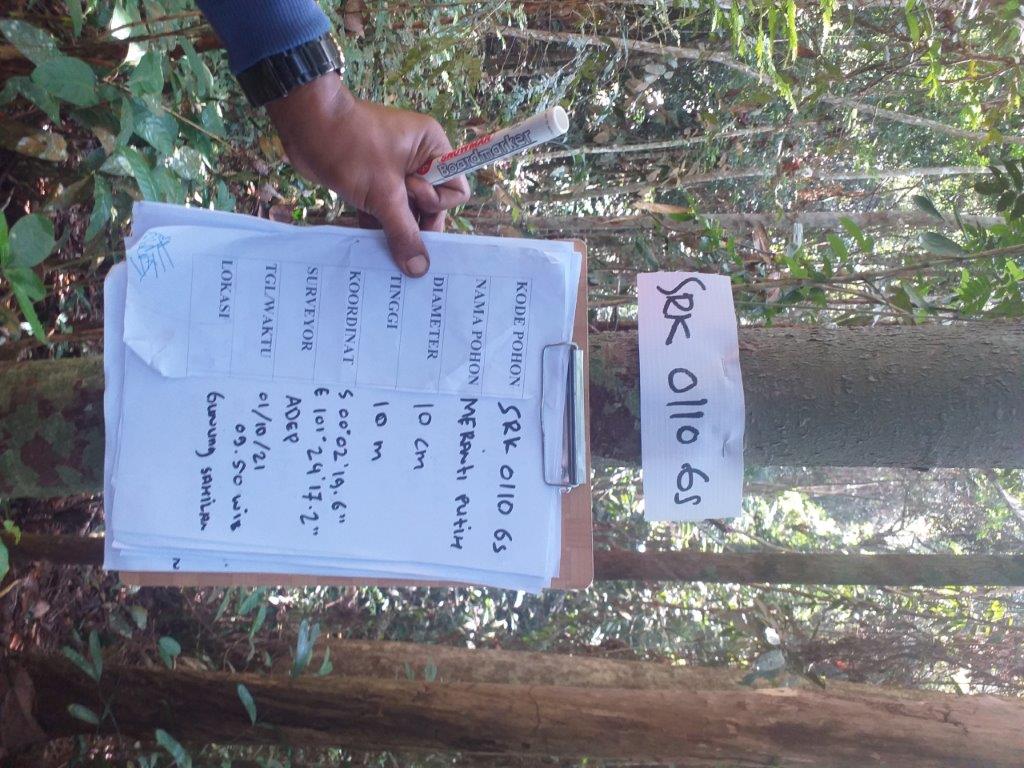 SRK 0110 GS
KODE POHON SRK 0110 GS
NAMA POHON MERANTI PUTIH
DIAMETER 10 cm
TINGGI 10 m
KOORDINAT S 00°02'19.6"
E 101°24'17.2"
SURVEYOR ADEP
TGL/WAKTU 01/10/21
09.50 WIB
LOKASI GUNUNG SAHILAN
Boardmarker